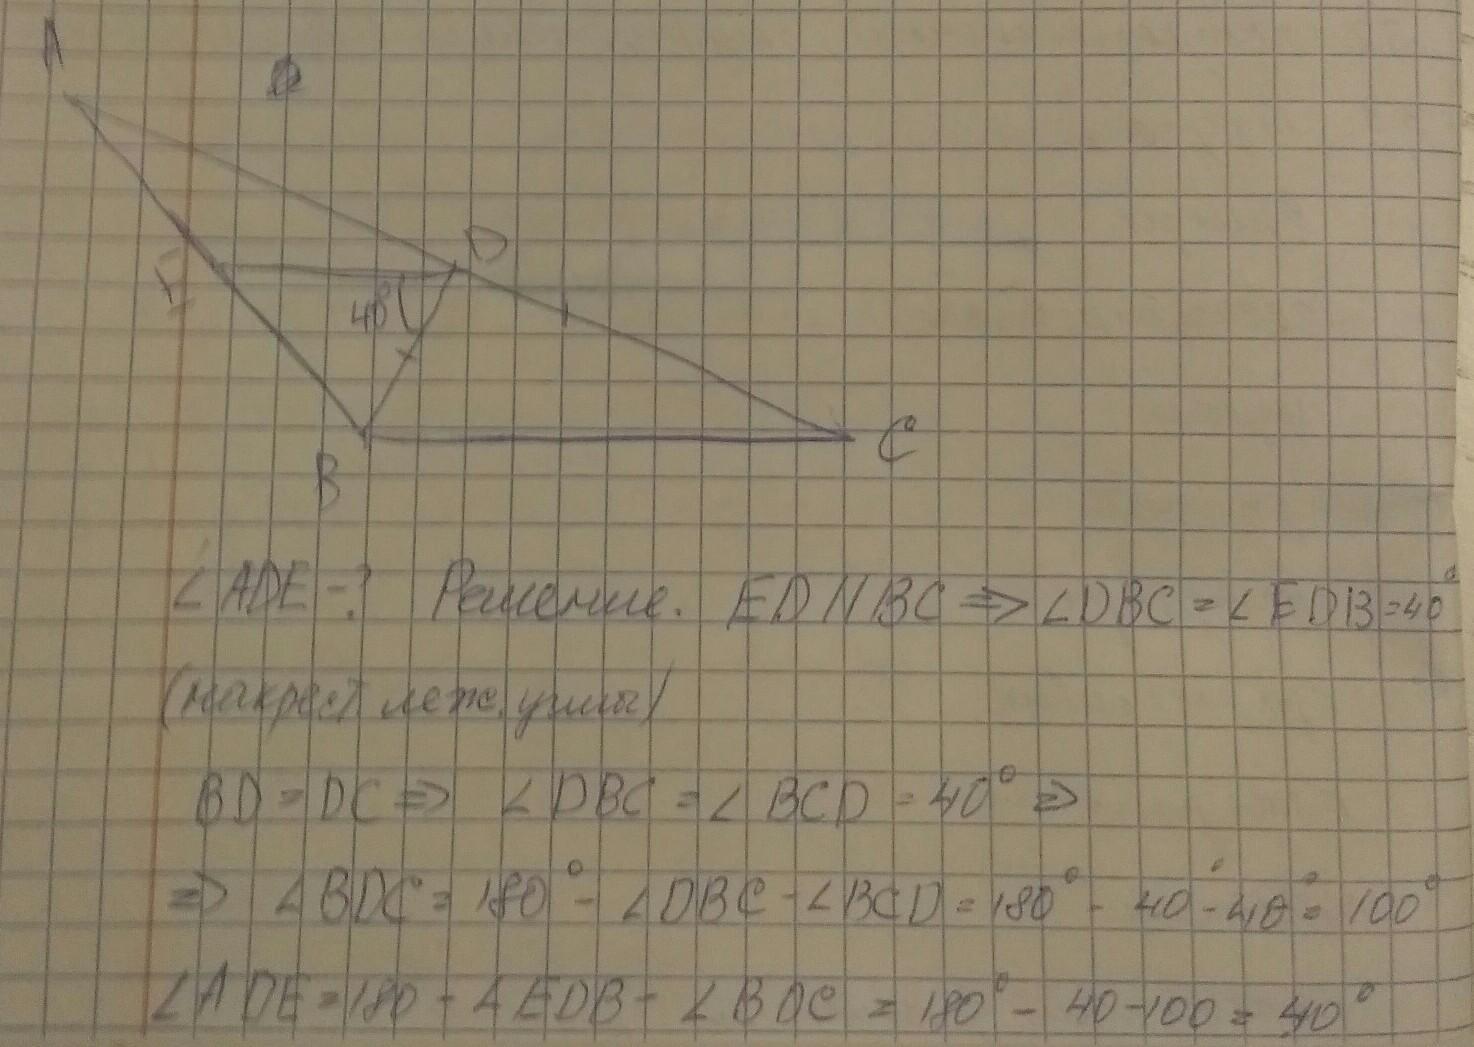 A
D
E
40
B
C
∠ADE-? Решение. ED||BC => ∠DBC = ∠EDB=40°
(накрест леж. углы)
BD = DC => ∠DBC = ∠BCD = 40° =>
=> ∠BDC = 180° - ∠DBC - ∠BCD = 180° - 40° - 40° = 100°
∠ADE = 180 - ∠EDB - ∠BDC = 180° - 40 - 100 = 40°